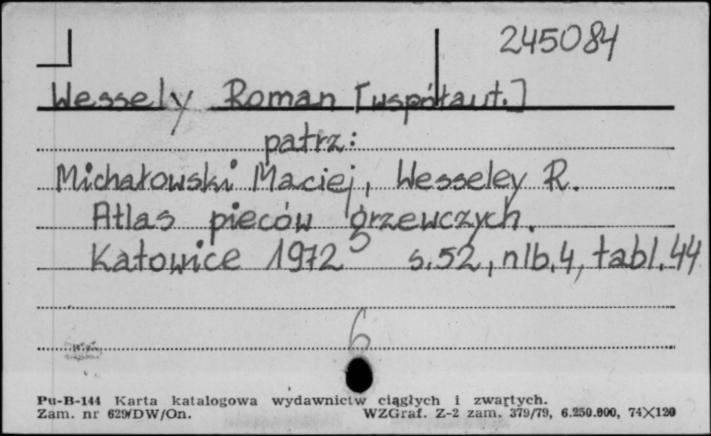 245084
Wessely Roman [współaut.]
patrz:
Michałowski Maciej, Wesseley R.
Atlas pieców grzewczych.
Katowice 1972 s.52, nlb.4, tabl.44
6
Pu-B-144 Karta katalogowa wydawnictw ciągłych i zwartych.
Zam. nr 629/DW/On. WZGraf. Z-2 zam. 379/79, 6.250.000, 74X120